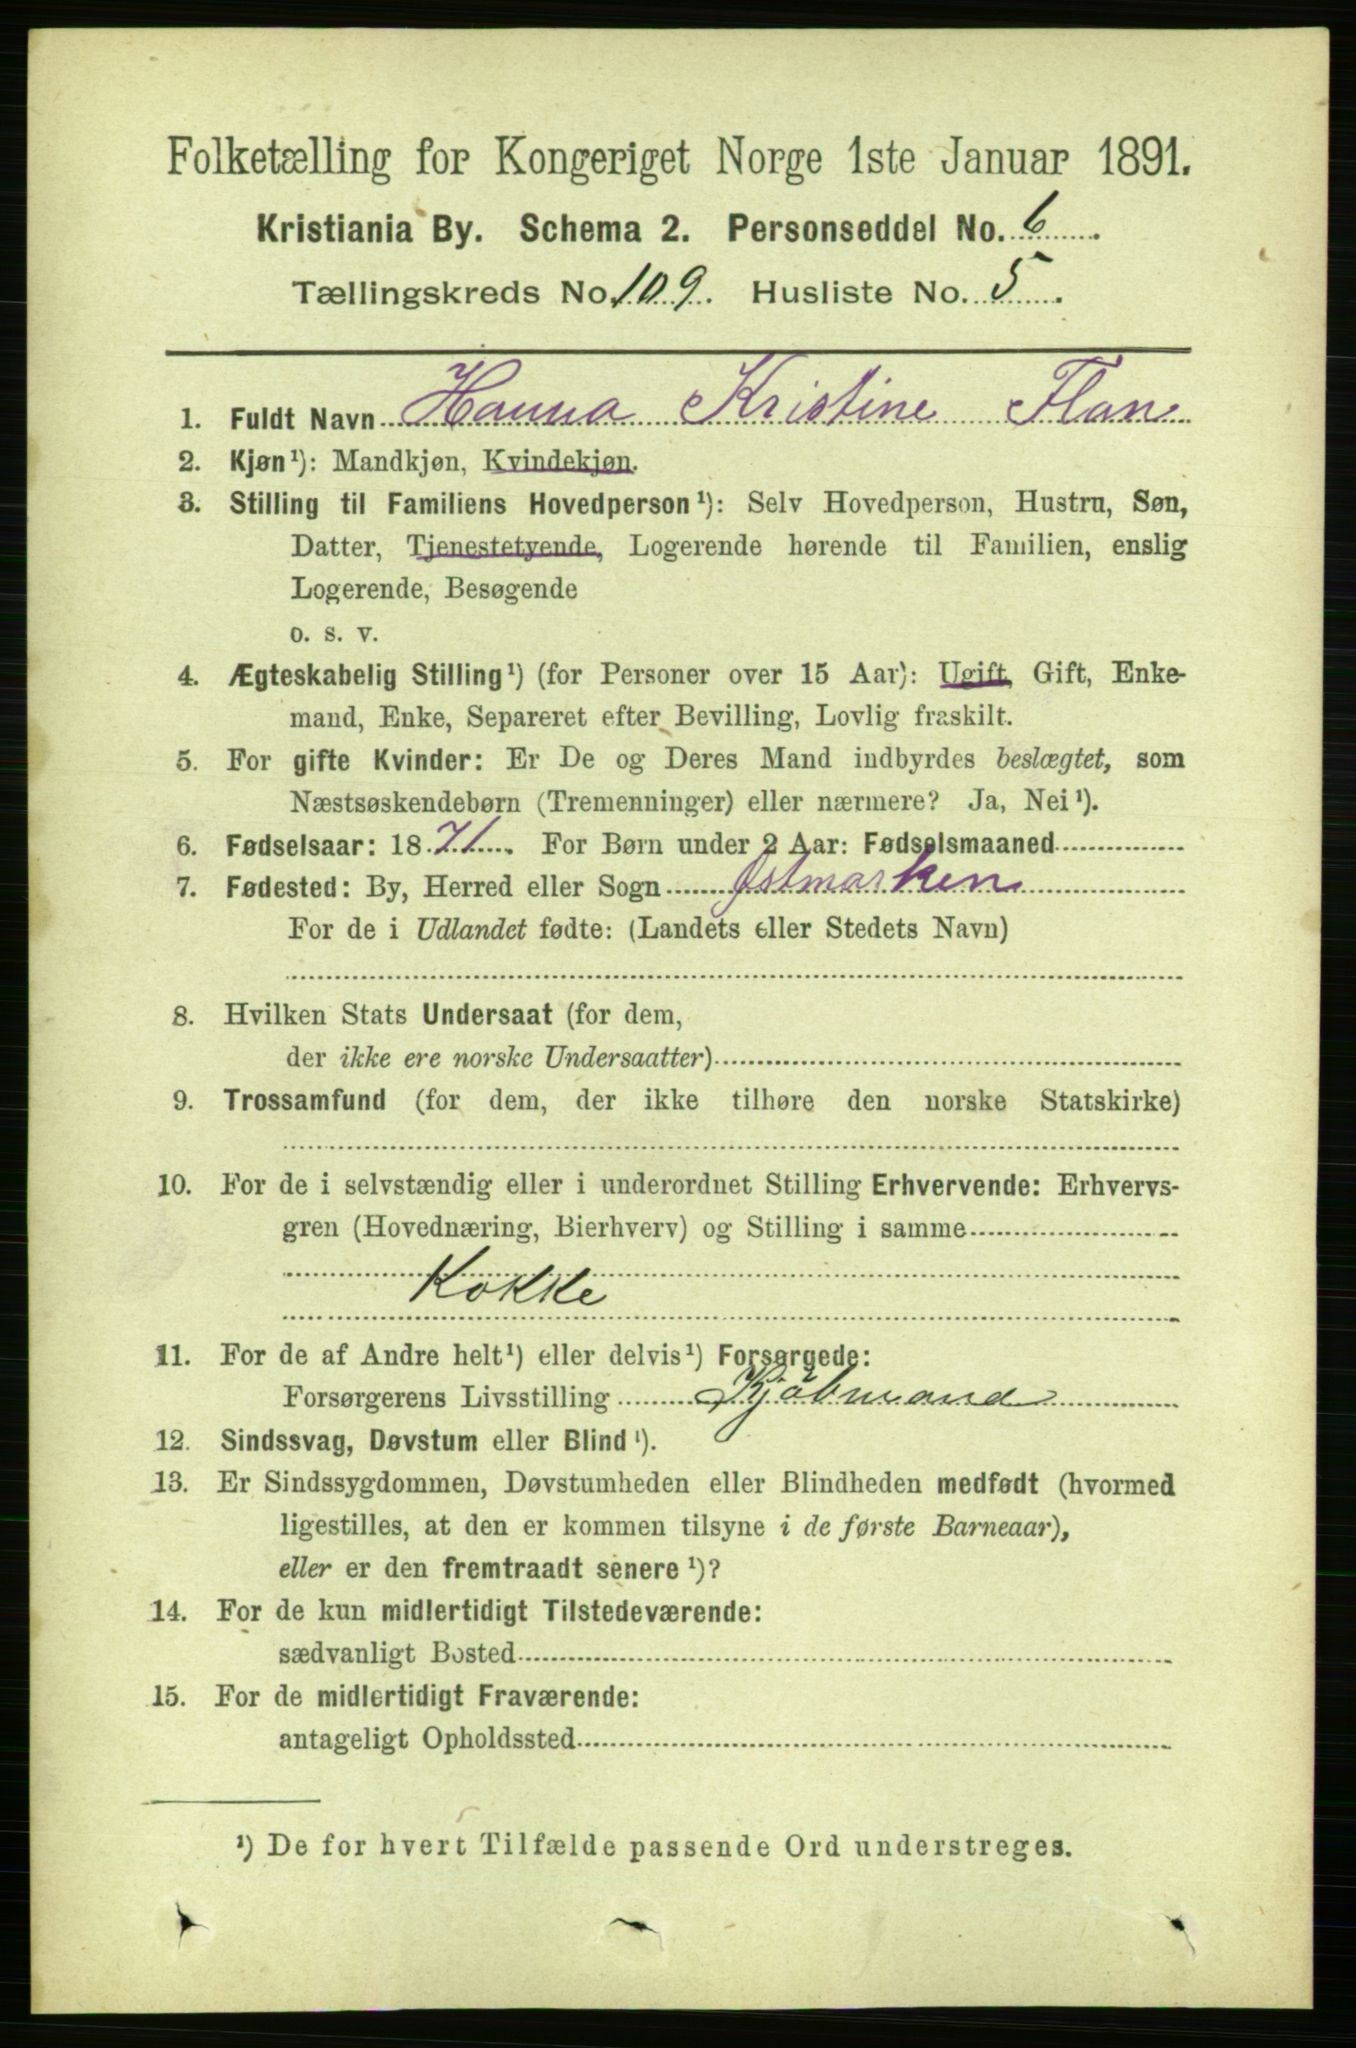 Folketælling for Kongeriget Norge 1ste Januar 1891.
Kristiania By. Schema 2. Personseddel No. 6
Tællingskreds No. 109. Husliste No. 5.
1. Fuldt Navn Hanna Kristine Flan
2. Kjøn¹): Mandkjøn, Kvindekjøn.
3. Stilling til Familiens Hovedperson¹): Selv Hovedperson, Hustru, Søn,
Datter, Tjenestetyende, Logerende hørende til Familien, enslig
Logerende, Besøgende
o. s. v.
4. Ægteskabelig Stilling¹) (for Personer over 15 Aar): Ugift, Gift, Enke-
mand, Enke, Separeret efter Bevilling, Lovlig fraskilt.
5. For gifte Kvinder: Er De og Deres Mand indbyrdes beslægtet, som
Næstsøskendebørn (Tremenninger) eller nærmere? Ja, Nei¹).
6. Fødselsaar: 1871. For Børn under 2 Aar: Fødselsmaaned
7. Fødested: By, Herred eller Sogn Østmarken
For de i Udlandet fødte: (Landets eller Stedets Navn)
8. Hvilken Stats Undersaat (for dem,
der ikke ere norske Undersaatter)
9. Trossamfund (for dem, der ikke tilhøre den norske Statskirke)
10. For de i selvstændig eller i underordnet Stilling Erhvervende: Erhvervs-
gren (Hovednæring, Bierhverv) og Stilling i samme
Kokke
11. For de af Andre helt¹) eller delvis¹) Forsørgede:
Forsørgerens Livsstilling Kjøbmand
12. Sindssvag, Døvstum eller Blind¹).
13. Er Sindssygdommen, Døvstumheden eller Blindheden medfødt (hvormed
ligestilles, at den er kommen tilsyne i de første Barneaar),
eller er den fremtraadt senere¹)?
14. For de kun midlertidigt Tilstedeværende:
sædvanligt Bosted
15. For de midlertidigt Fraværende:
antageligt Opholdssted
¹) De for hvert Tilfælde passende Ord understreges.